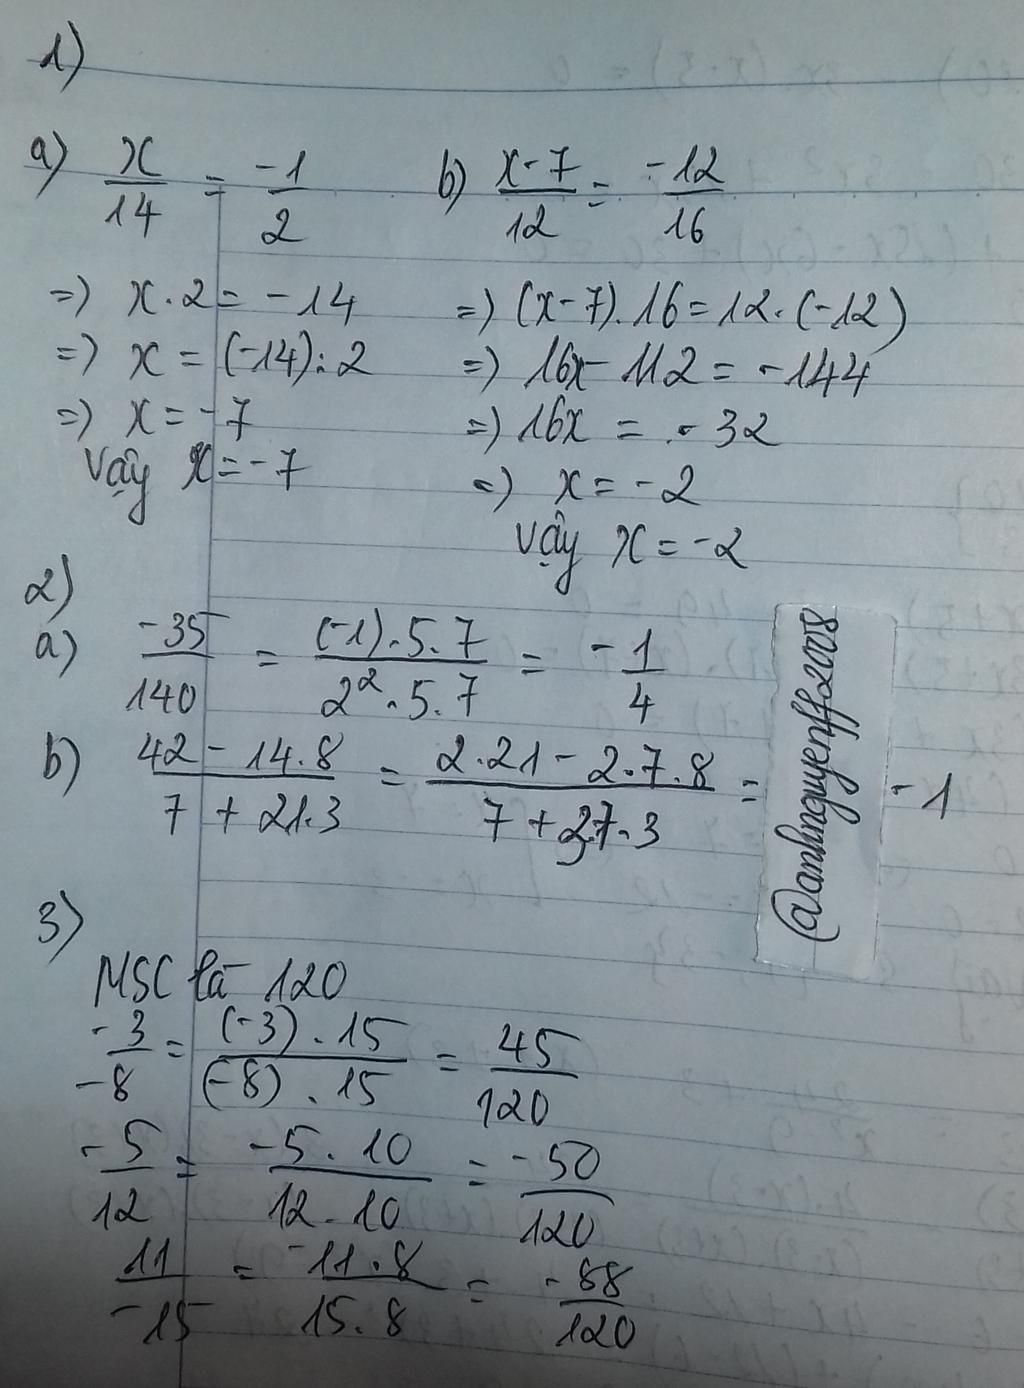 1)
a) x/14 = -1/2
=) x . 2 = -14
=) x = (-14) : 2
=) x = -7
Vậy x = -7
b) x-7/12 = -12/16
=) (x-7) . 16 = 12 . (-12)
=) 16x - 112 = -144
=) 16x = -32
=) x = -2
Vậy x = -2
2)
a) -35/140 = (-1).5.7/2².5.7 = -1/4
b) 42 - 14.8/7 + 21.3 = 2.21 - 2.7.8/7 + 37.3 = -1
@anhnguyenff2008
3)
MSC là 120
-3/-8 = (-3) . 15/(-8) . 15 = 45/120
-5/12 = -5 . 10/12 . 10 = -50/120
11/-15 = -11.8/15.8 = -88/120